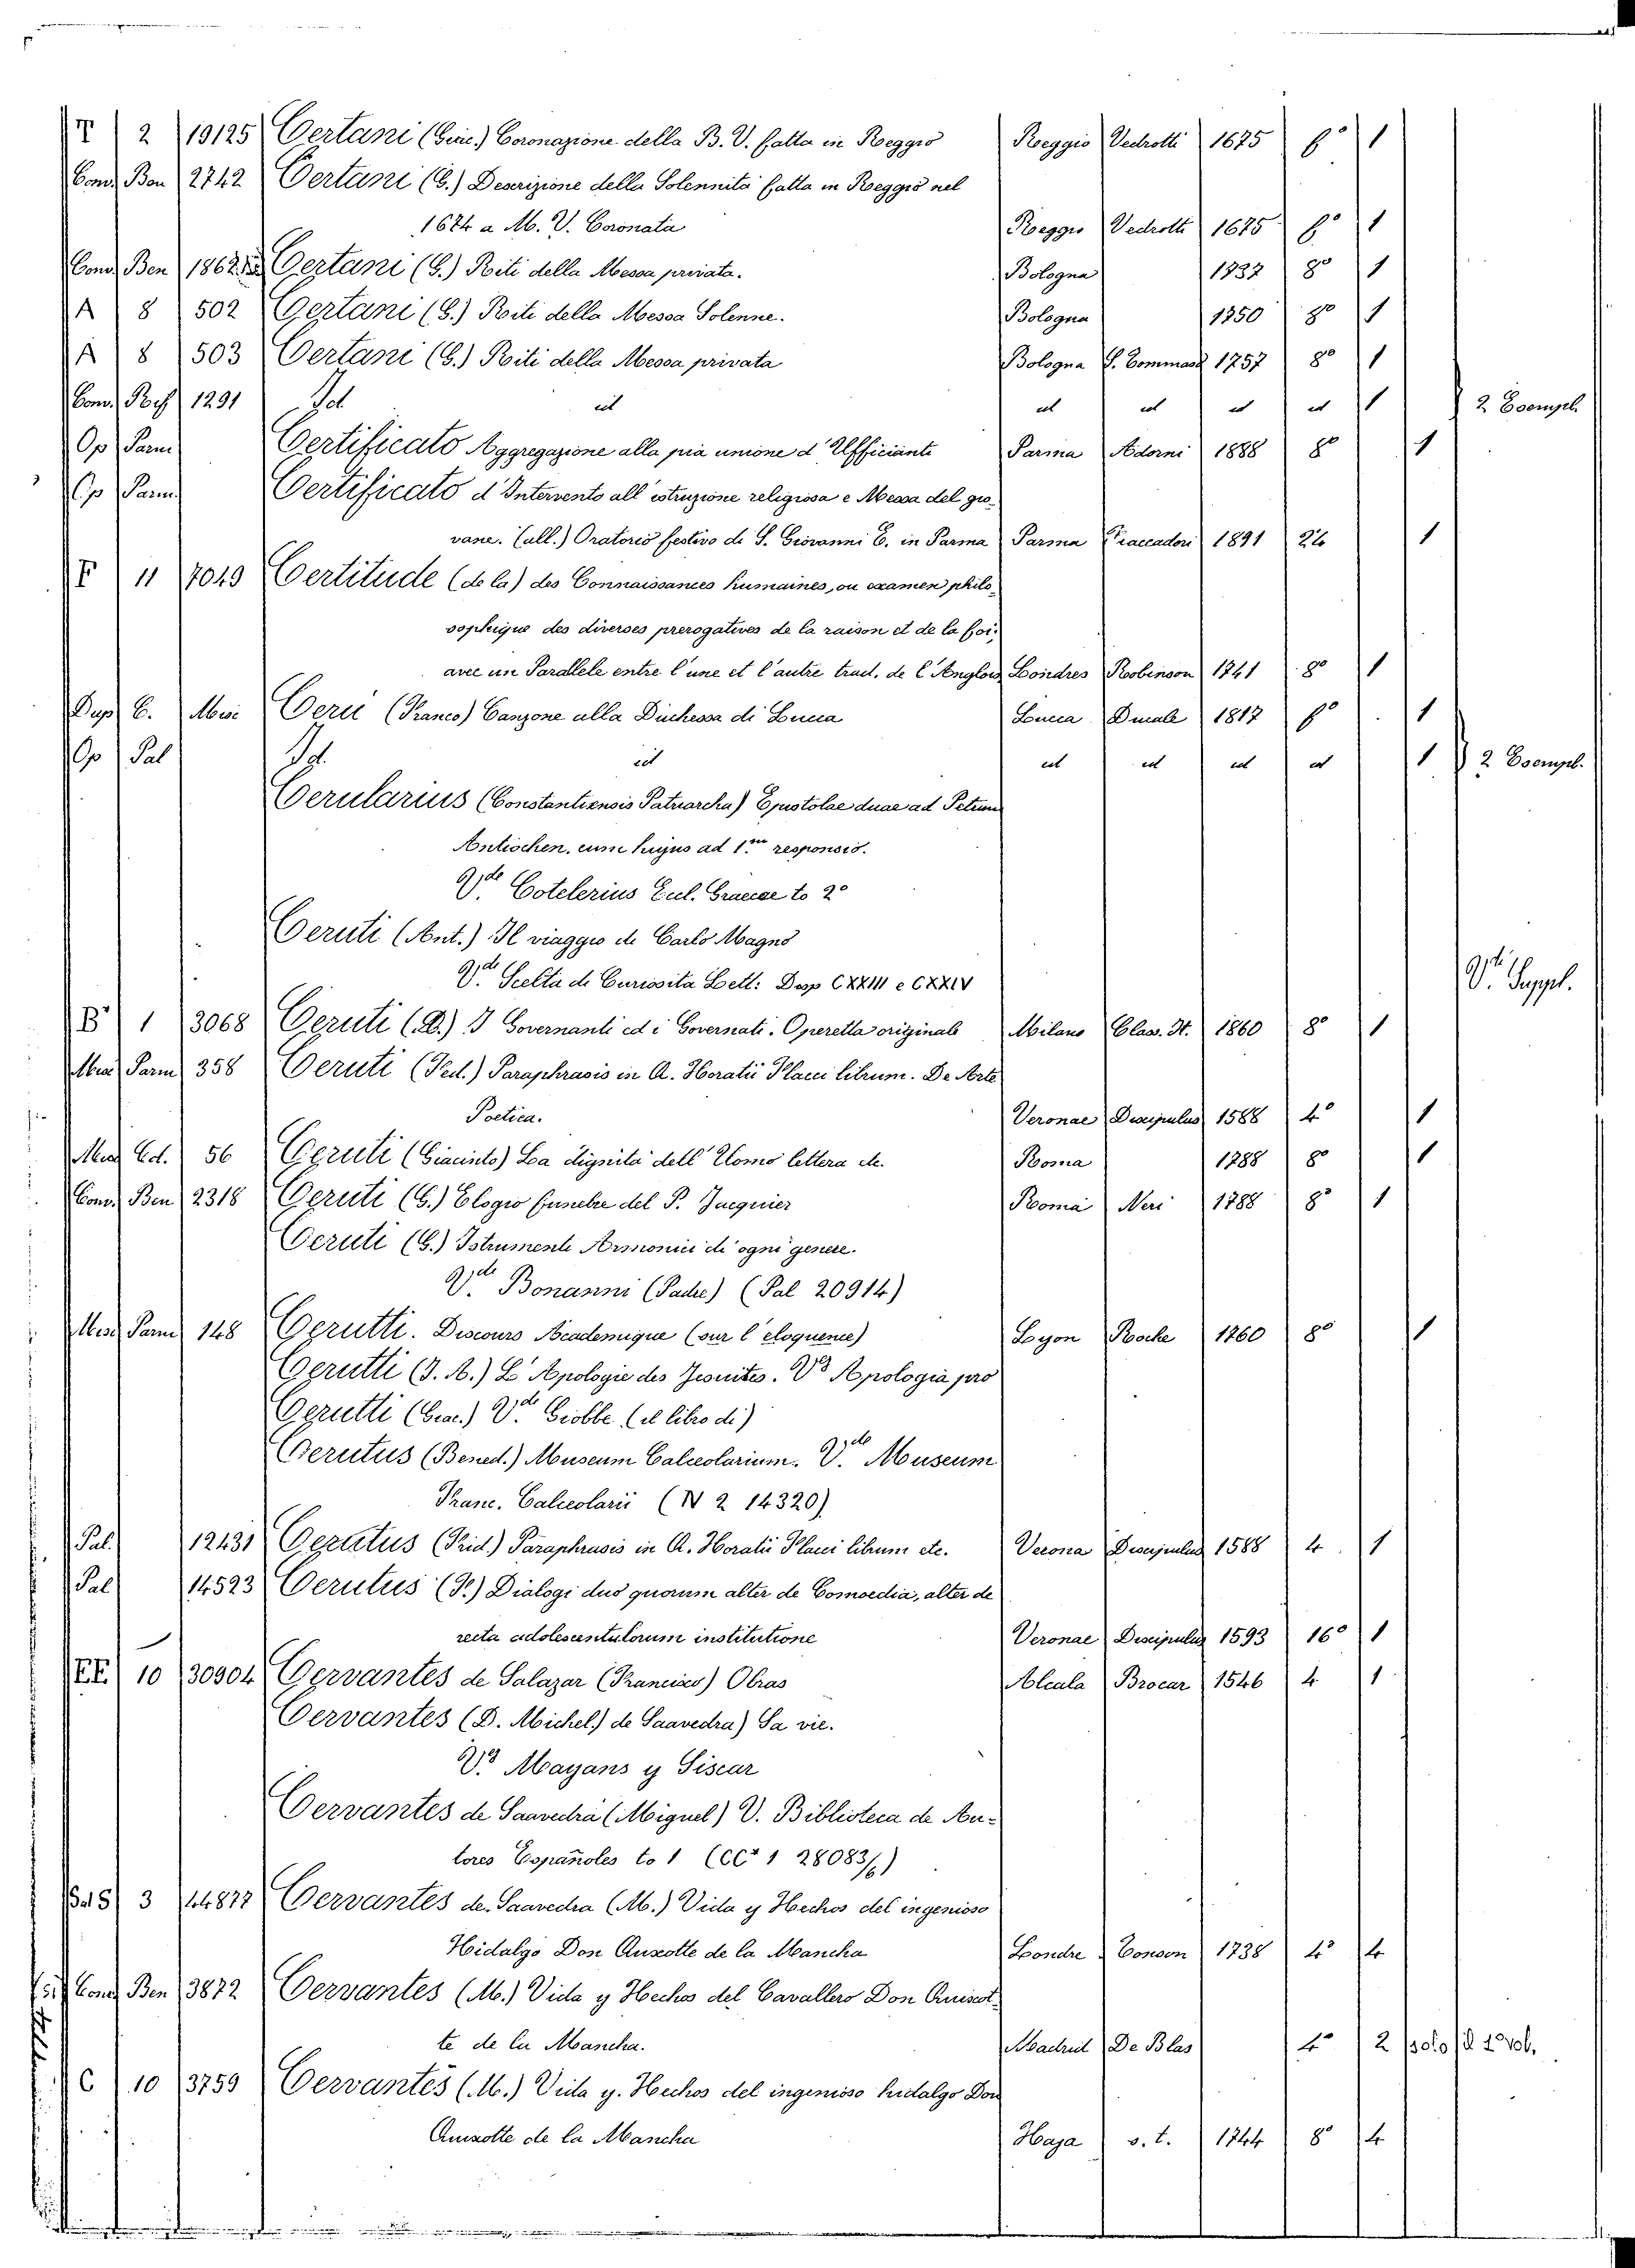 T 2 19125 Certani (Giac.) Coronazione della B. V. fatta in Reggio Reggio Vedrotti 1675 f° 1
Conv. Ben 2742 Certani (G.) Descrizione della Solennità fatta in Reggio nel
1674 a M. V. Coronata Reggio Vedrotti 1675 f° 1
Conv. Ben 1862 Certani (G.) Riti della Messa privata. Bologna 1737 8° 1
A 8 502 Certani (G.) Riti della Messa Solenne. Bologna 1750 8° 1
A 8 503 Certani (G.) Riti della Messa privata Bologna S. Tommaso 1757 8° 1
Conv. Rif 1291 Id. id id id id id 1 2 Esempl.
Op Parm Certificato Aggregazione alla pia unione d'Ufficiante Parma Adorni 1888 8° 1
Op Parm. Certificato d'Intervento all'istruzione religiosa e Messa del gio-
vane. (all.) Oratorio festivo di S. Giovanni E. in Parma Parma Fiaccadori 1891 24 1
F 11 7049 Certitude (de la) des Connaissances humaines, ou examen philo-
sophique des diverses prerogatives de la raison et de la foi,
avec un Parallele entre l'une et l'autre trad. de l'Anglois Londres Robinson 1741 8° 1
Dup C. Misc Ceru (Franco) Canzone alla Duchessa di Lucca Lucca Ducale 1817 f° 1
Op Pal Id. id id id id id 1 2 Esempl.
Cerularius (Constantiensis Patriarcha) Epistolae duae ad Petrum
Antiochen. cum hujus ad 1.m responsio.
V.de Cotelerius Eccl. Graecae to 2°
Ceruti (Ant.) Il viaggio di Carlo Magno
V.de Scelta di Curiosita Lett: Disp CXXIII e CXXIV V.de Suppl.
B' 1 3068 Ceruti (D.) I Governanti ed i Governati. Operetta originale Milano Class. It. 1860 8° 1
Misc Parm 358 Ceruti (Fed.) Paraphrasis in Q. Horatii Flacci librum. De Arte
Poetica. Veronae Discipulus 1588 4° 1
Misc Ed. 56 Ceruti (Giacinto) La dignita dell'Uomo lettera etc. Roma 1788 8° 1
Conv. Ben 2318 Ceruti (G.) Elogio funebre del P. Jacquier Roma Neri 1788 8° 1
Ceruti (G.) Istrumenti Armonici di ogni genere.
V.de Bonanni (Padre) (Pal 20914)
Misc Parm 148 Cerutti. Discours Academique (sur l'eloquence) Lyon Roche 1760 8° 1
Cerutti (J. A.) L'Apologie des Jesuites. V.e Apologia pro
Cerutti (Giac.) V.de Giobbe (il libro di)
Cerutus (Bened.) Museum Calceolarium. V.de Museum
Franc. Calceolarii (N 2 14320)
Pal. 12431 Cerutus (Frid.) Paraphrasis in Q. Horatii Flacci librum etc. Verona Discipulus 1588 4 1
Pal 14523 Cerutus (F.) Dialogi duo quorum alter de Comoedia, alter de
recta adolescentulorum institutione Veronae Discipulus 1593 16° 1
EE 10 30904 Cervantes de Salazar (Francisco) Obras Alcala Brocar 1546 4 1
Cervantes (D. Michel.) de Saavedra) Sa vie.
V.e Mayans y Siscar
Cervantes de Saavedra (Miguel) V. Biblioteca de Au-
tores Españoles to 1 (CC* 1 28083/1)
3 14877 Cervantes de Saavedra (M.) Vida y Hechos del ingenioso
Hidalgo Don Quixotte de la Mancha Londre Tonson 1738 4° 4
Conv Ben 3872 Cervantes (M.) Vida y Hechos del Cavallero Don Quixot-
te de la Mancha. Madrid De Blas 4° 2 solo il 2° vol.
C 10 3759 Cervantes (M.) Vida y. Hechos del ingenioso hidalgo Don
Quixotte de la Mancha Haja s. t. 1744 8° 4